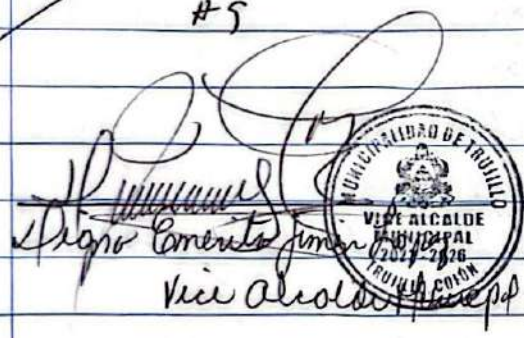 #9
MUNICIPALIDAD DE TRUJILLO
VICE ALCALDE
MUNICIPAL
2022-2026
TRUJILLO COLÓN
Digno Emerito
Vice Alcalde